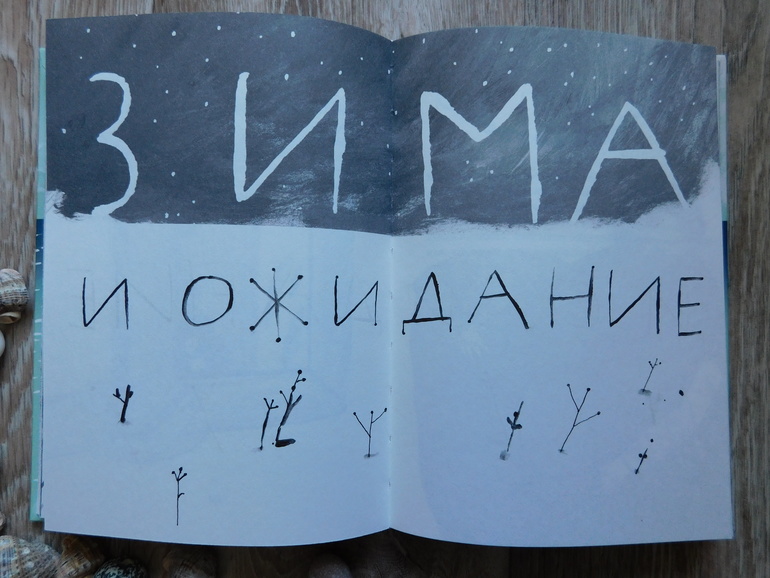 ЗИМА
И ОЖИДАНИЕ